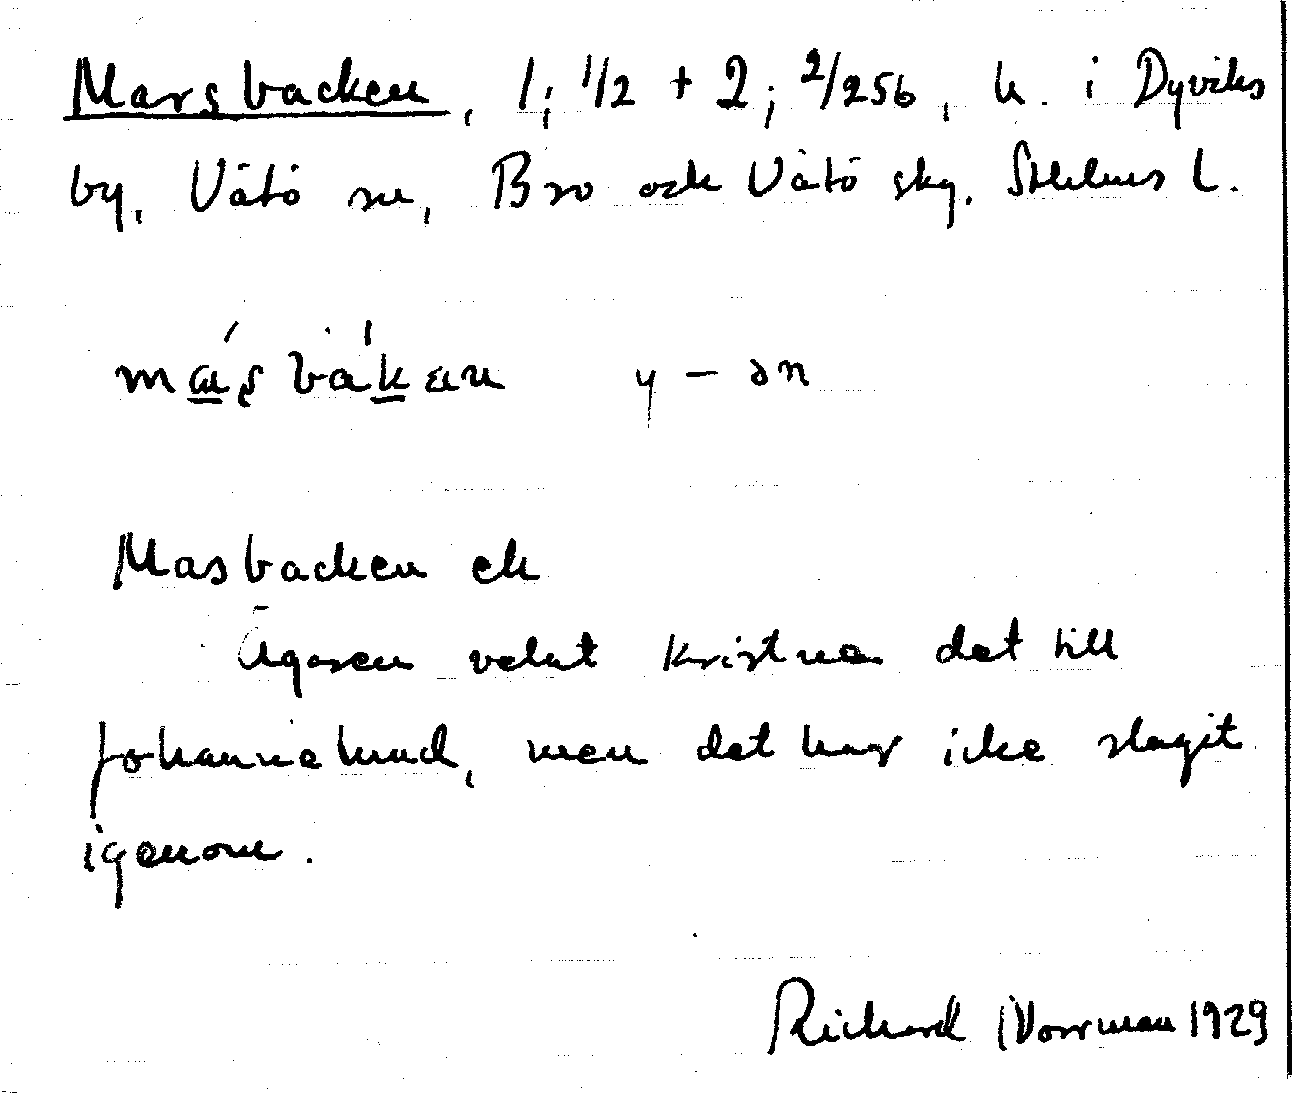 Marsbacken, 1; 1/2 + 2; 2/256, h. i Dyviks
by, Vätö sn, Bro och Vätö skg. Sthlms l.
y – ən
Masbacken ek
Ägaren velat kristna det till
Johannelund, men det har icke slagit
igenom.
Richard Norrman 1929